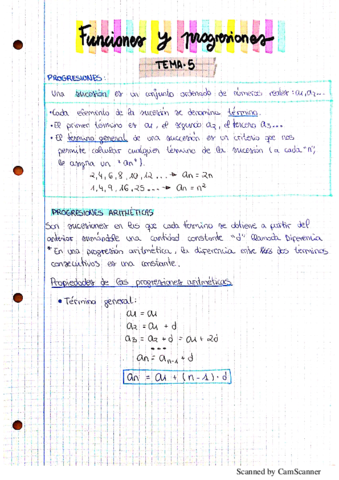 Funciones y progresiones
TEMA-5
PROGRESIONES:
Una sucesión es un conjunto ordenado de números reales: a1, a2...
•Cada elemento de la sucesión se denomina término.
•El primer término es a1, el segundo a2, el tercero a3...
•El término general de una sucesión es un criterio que nos
permite calcular cualquier término de la sucesión (a cada "n",
se asigna un "an").
2, 4, 6, 8, 10, 12 ... → an = 2n
1, 4, 9, 16, 25 ... → an = n²
PROGRESIONES ARITMÉTICAS
Son sucesiones en las que cada termino se obtiene a partir del
anterior sumándole una cantidad constante "d" llamada Diferencia
* En una progresión aritmética, la diferencia entre los dos términos
consecutivos es una constante.
Propiedades de las progresiones aritméticas
• Término general:
a1 = a1
a2 = a1 + d
a3 = a2 + d = a1 + 2d
...
an = an-1 + d
an = a1 + (n-1) · d
Scanned by CamScanner